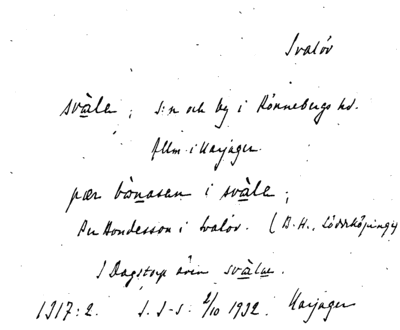 Svalöv
svàle; s:n och by i Rönnebergs hd.
allm. i Harjager.
pær bònasen i svàle;
Per Bondesson i Svalöv. (B.H., Löddeköpinge)
I Dagstorp även svàlw.
1917:2. I. I-s: 2/10 1932. Harjager